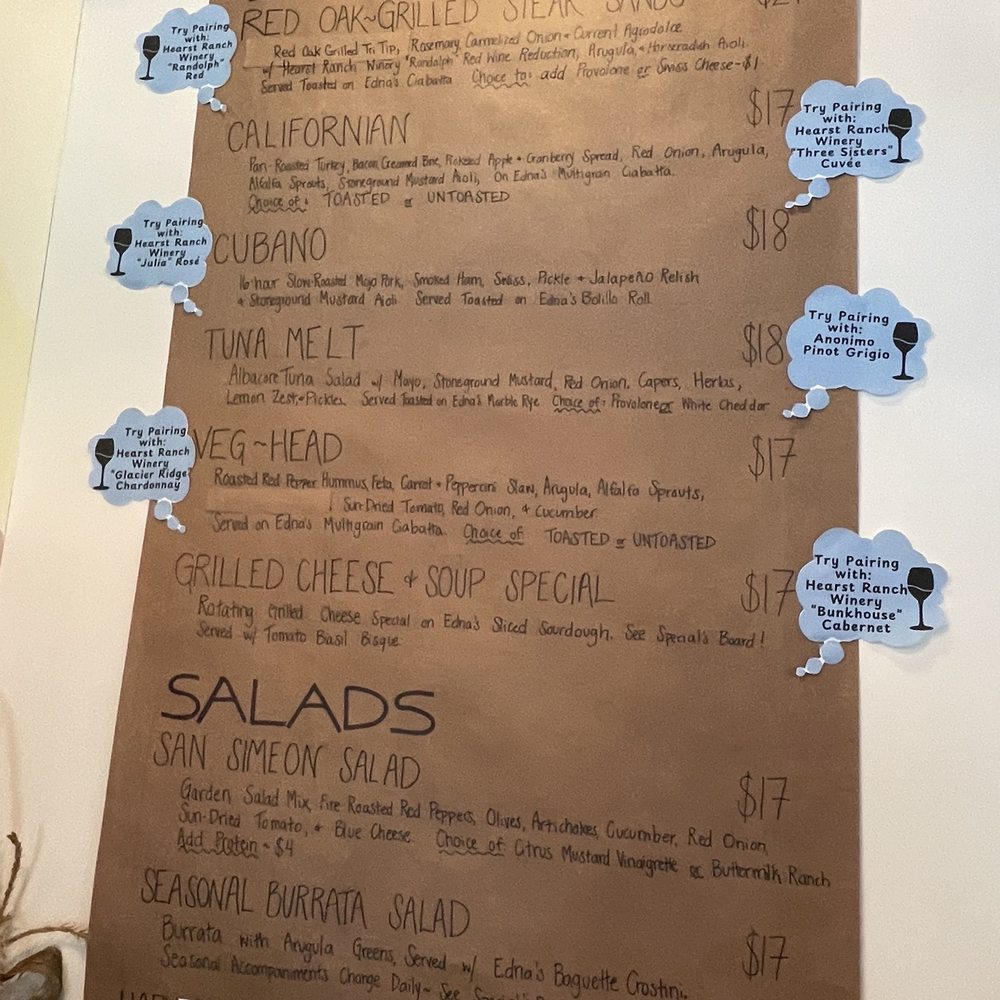 RED OAK~GRILLED STEAK SANDO
Red Oak Grilled Tri Tip, Rosemary Carmelized Onion + Currant Agrodolce
w/ Hearst Ranch Winery "Randolph" Red Wine Reduction, Arugula, + Horseradish Aioli.
Served Toasted on Edna's Ciabatta. Choice to: add Provolone or Swiss Cheese - $1
Try Pairing
with:
Hearst Ranch
Winery
"Randolph"
Red
CALIFORNIAN $17
Pan-Roasted Turkey, Bacon, Creamed Brie, Pickeled Apple + Cranberry Spread, Red Onion, Arugula,
Alfalfa Sprouts, Stoneground Mustard Aioli, On Edna's Multigrain Ciabatta.
Choice of: TOASTED or UNTOASTED
Try Pairing
with:
Hearst Ranch
Winery
"Three Sisters"
Cuvée
CUBANO $18
16 hour Slow-Roasted Mojo Pork, Smoked Ham, Swiss, Pickle + Jalapeño Relish
+ Stoneground Mustard Aioli. Served Toasted on Edna's Bolillo Roll
Try Pairing
with:
Hearst Ranch
Winery
"Julia" Rosé
TUNA MELT $18
Albacore Tuna Salad w/ Mayo, Stoneground Mustard, Red Onion, Capers, Herbs,
Lemon Zest, + Pickles. Served Toasted on Edna's Marble Rye. Choice of: Provolone or White Cheddar
Try Pairing
with:
Anonimo
Pinot Grigio
VEG~HEAD $17
Roasted Red Pepper Hummus, Feta, Carrot + Pepperoncini Slaw, Arugula, Alfalfa Sprouts,
Sun-Dried Tomato, Red Onion, + Cucumber.
Served on Edna's Multigrain Ciabatta. Choice of: TOASTED or UNTOASTED
Try Pairing
with:
Hearst Ranch
Winery
"Glacier Ridge"
Chardonnay
GRILLED CHEESE + SOUP SPECIAL $17
Rotating Grilled Cheese Special on Edna's Sliced Sourdough. See Special's Board!
Served w/ Tomato Basil Bisque
Try Pairing
with:
Hearst Ranch
Winery
"Bunkhouse"
Cabernet
SALADS
SAN SIMEON SALAD $17
Garden Salad Mix, Fire Roasted Red Peppers, Olives, Artichokes, Cucumber, Red Onion,
Sun-Dried Tomato, + Blue Cheese. Choice of: Citrus Mustard Vinaigrette or Buttermilk Ranch
Add Protein - $4
SEASONAL BURRATA SALAD $17
Burrata with Arugula Greens, Served w/ Edna's Baguette Crostini.
Seasonal Accompaniments Change Daily~ See